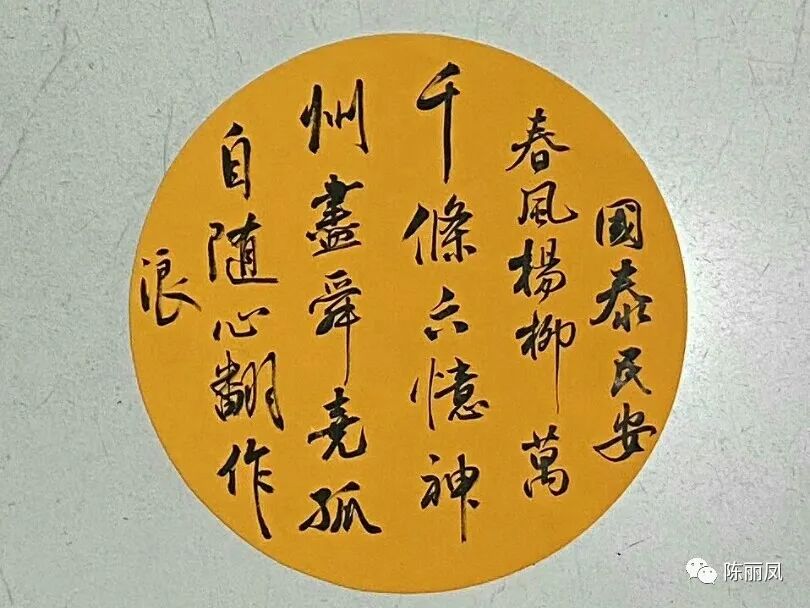 國泰民安
春風楊柳萬
千條六憶神
州盡舜堯孤
自随心翻作
浪
陈丽凤